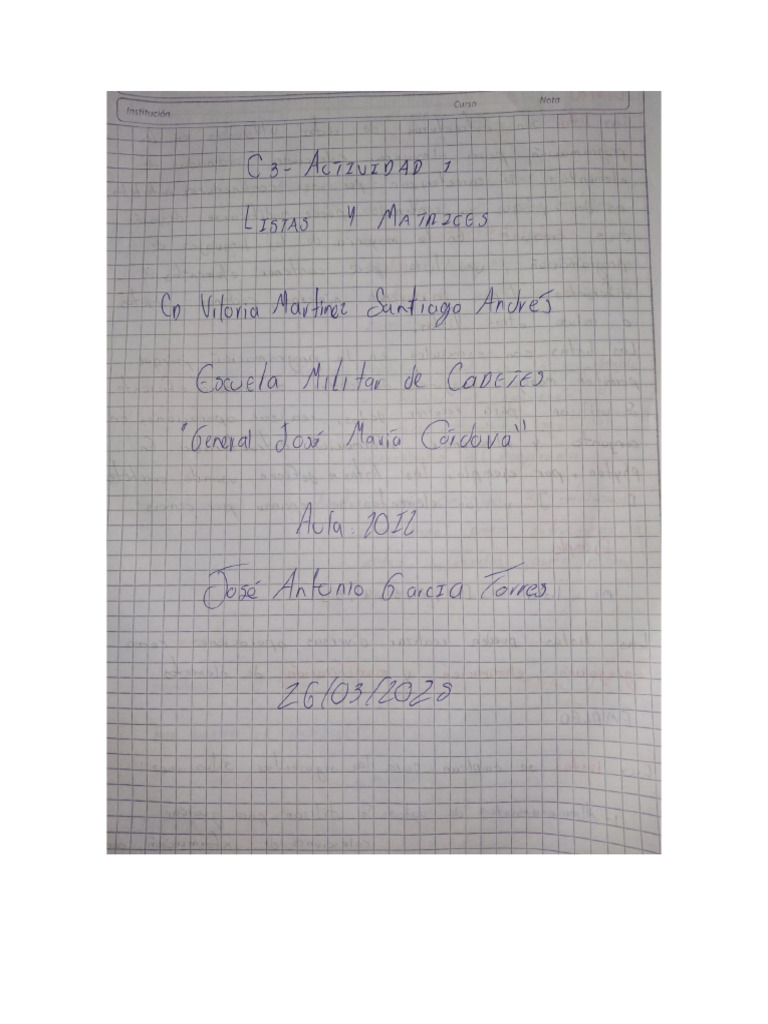 Institución
Curso
Nota
C3- ACTIVIDAD 1
LISTAS Y MATRICES
CD Vitoria Martinez Santiago Andrés
Escuela Militar de CADETES
"General José María Córdova"
Aula 2012
José Antonio García Torres
26/03/2025